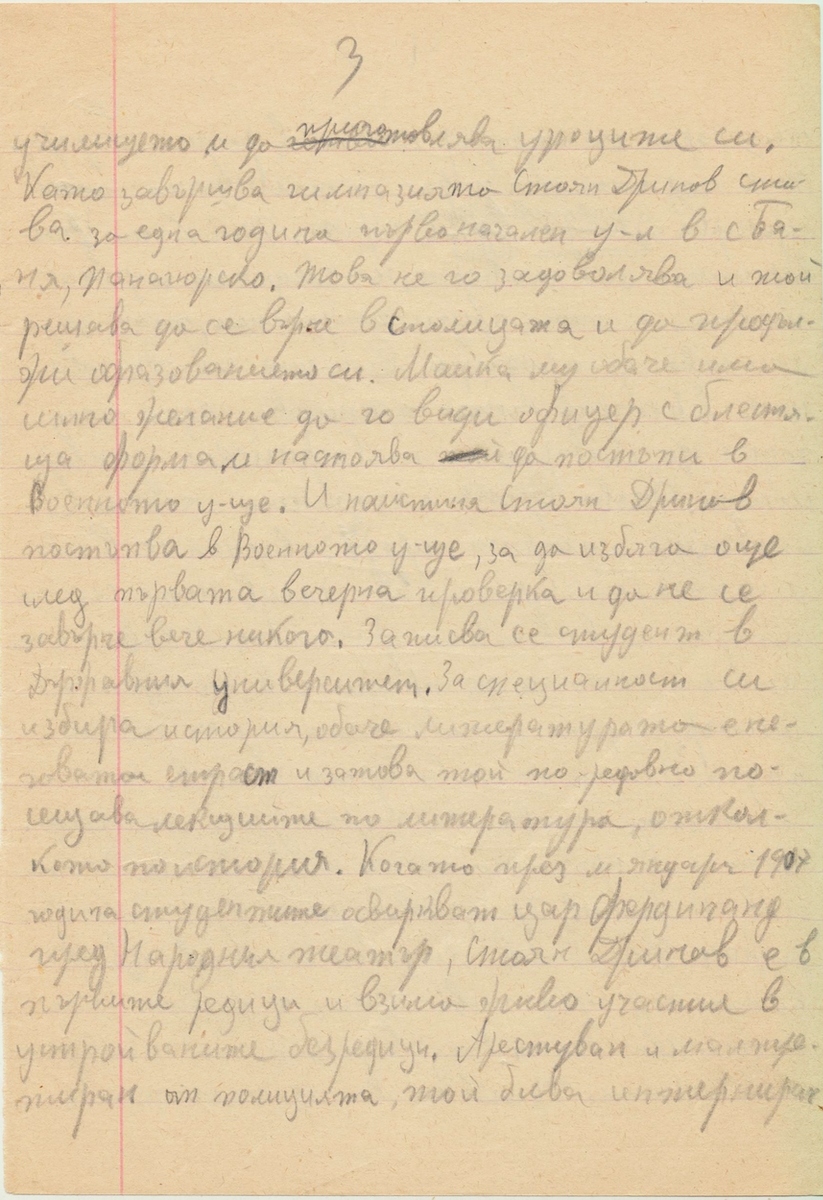 3
училището и да приготовлява уроците си.
Като завършва гимназията Стоян Дринов ста-
ва за една година първоначален у-л в с Ба-
ня, Панагюрско. Това не го задоволява и той
решава да се върне в Столицата и да продъл-
жи образованието си. Майка му обаче има
силно желание да го види офицер с блестя-
ща форма и настоява да постъпи в
Военното у-ще. И наистина Стоян Дринов
постъпва в Военното у-ще, за да избяга още
след първата вечерна проверка и да не се
завърне вече никога. Записва се студент в
Държавния университет. За специалност си
избира история, обаче литературата е не-
говата страст и затова той по редовно по-
сещава лекциите по литература, откол-
кото по история. Когато през м януари 1907
година студентите освиркват цар Фердинанд
пред Народния театър, Стоян Дринов е в
първите редици и взима живо участие в
устройваните безредици. Арестуван и малтре-
тиран от полицията, той бива интерниран